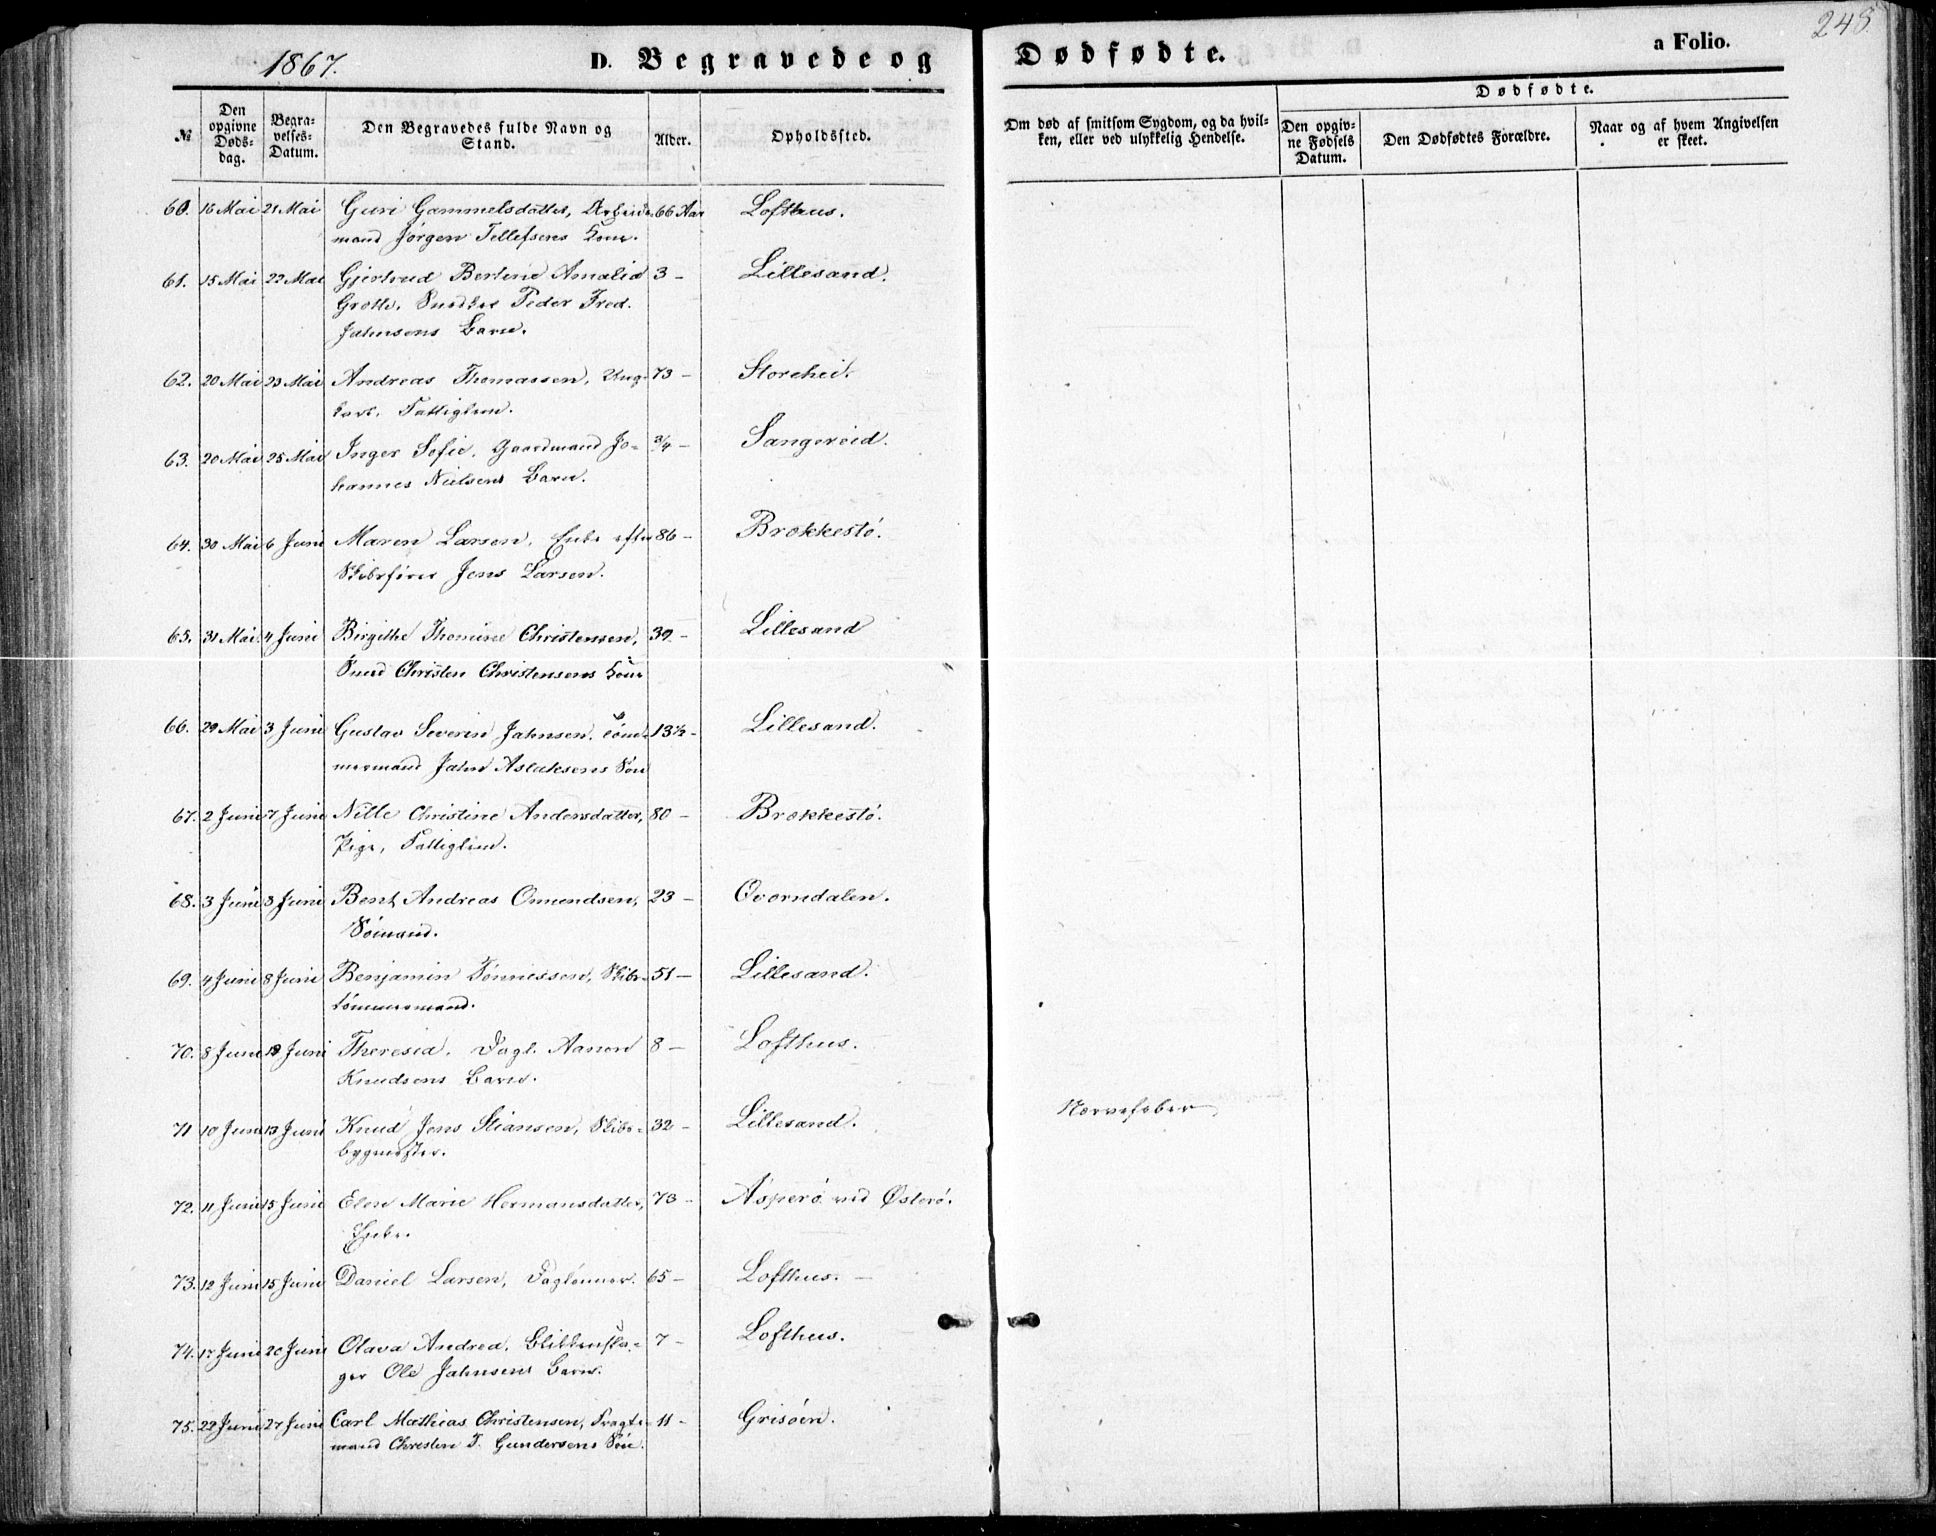 1867.
D. Begravede og Dødfødte.
a Folio.
248.
№
Den opgivne Døds-dag.
Begra-velses-Datum.
Den Begravedes fulde Navn og Stand.
Alder.
Opholdssted.
Om død af smitsom Sygdom, og da hvil-ken, eller ved ulykkelig Hendelse.
Dødfødte.
Den opgiv-ne Fødsels Datum.
Den Dødfødtes Forældre.
Naar og af hvem Angivelsen er skeet.
60. 16 Mai 21 Mai Guri Gammelsdatter, Arbeids- 66 Aar Lofthus.
mand Jørgen Tellefsens Kone.
61. 15 Mai 22 Mai Gjertrud Bertine Amalia 3 - Lillesand.
Grotte. Snedker Peder Fred.
Jahnsens Barn.
62. 20 Mai 23 Mai Andreas Thomassen, Ung- 73 - Storehei.
karl, Fattiglem.
63. 20 Mai 25 Mai Inger Sofie. Gaardmand Jo- 3/4 - Sangereid.
hannes Nielsens Barn.
64. 30 Mai 6 Juni Maren Larsen. Enke efter 86 - Brækkestø.
Skibsfører Jens Larsen.
65. 31 Mai 4 Juni Birgithe Thomine Christensen, 39 - Lillesand
Smed Christen Christensens Kone
66. 29 Mai 3 Juni Gustav Severin Jahnsen. Tøm- 13 1/2 - Lillesand.
mermand Jahn Aslaksens Søn
67. 2 Juni 7 Juni Nille Christine Andersdatter, 80 - Brækkestø.
Pige, Fattiglem.
68. 3 Juni 8 Juni Bent Andreas Omundsen, 23 - Qværndalen.
Sømand.
69. 4 Juni 8 Juni Benjamin Tønnessen, Skibs- 51 - Lillesand.
tømmermand.
70. 8 Juni 13 Juni Theresia. Dagl. Aanon 8 - Lofthus.
Knudsens Barn.
71 10 Juni 13 Juni Knud Jens Stiansen, Skibs- 32 - Lillesand. Nervefeber
bygmester.
72. 11 Juni 15 Juni Elen Marie Hermansdatter, 73 - Asperø ved Østerø.
Enke.
73. 12 Juni 15 Juni Daniel Larsen, Daglønner. 65 - Lofthus. -
74. 17 Juni 20 Juni Olava Andrea. Blikkensla- 7 - Lofthus.
ger Ole Jahnsens Barn.
75. 22 Juni 27 Juni Carl Mathias Christensen, Fragte- 11 - Grisøen.
mand Christen T. Gundersens Søn.